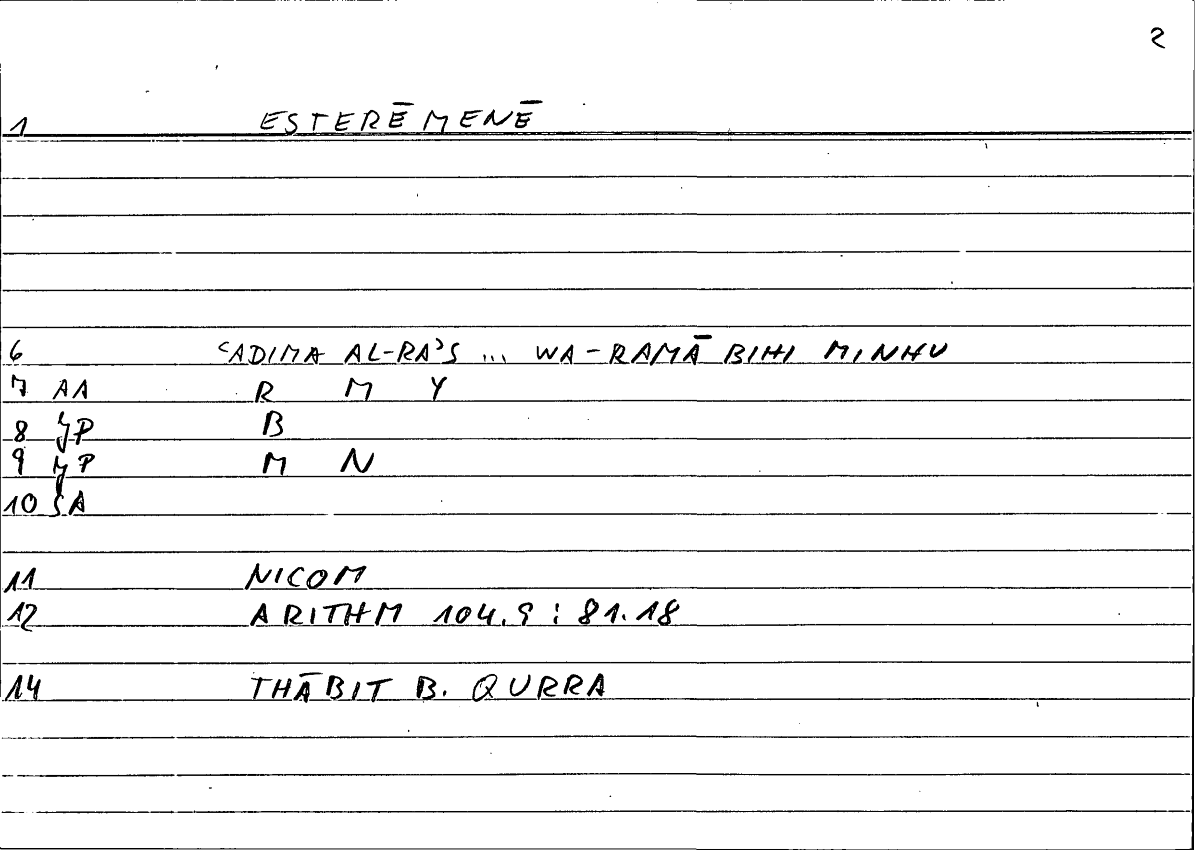 2
1 ESTERĒMENĒ
6 ʿADIMA AL-RAʾS ... WA-RAMĀ BIHI MINHU
7 AA R M Y
8 JP B
9 JP M N
10 SA
11 NICOM
12 ARITHM 104.9 : 81.18
14 THĀBIT B. QURRA